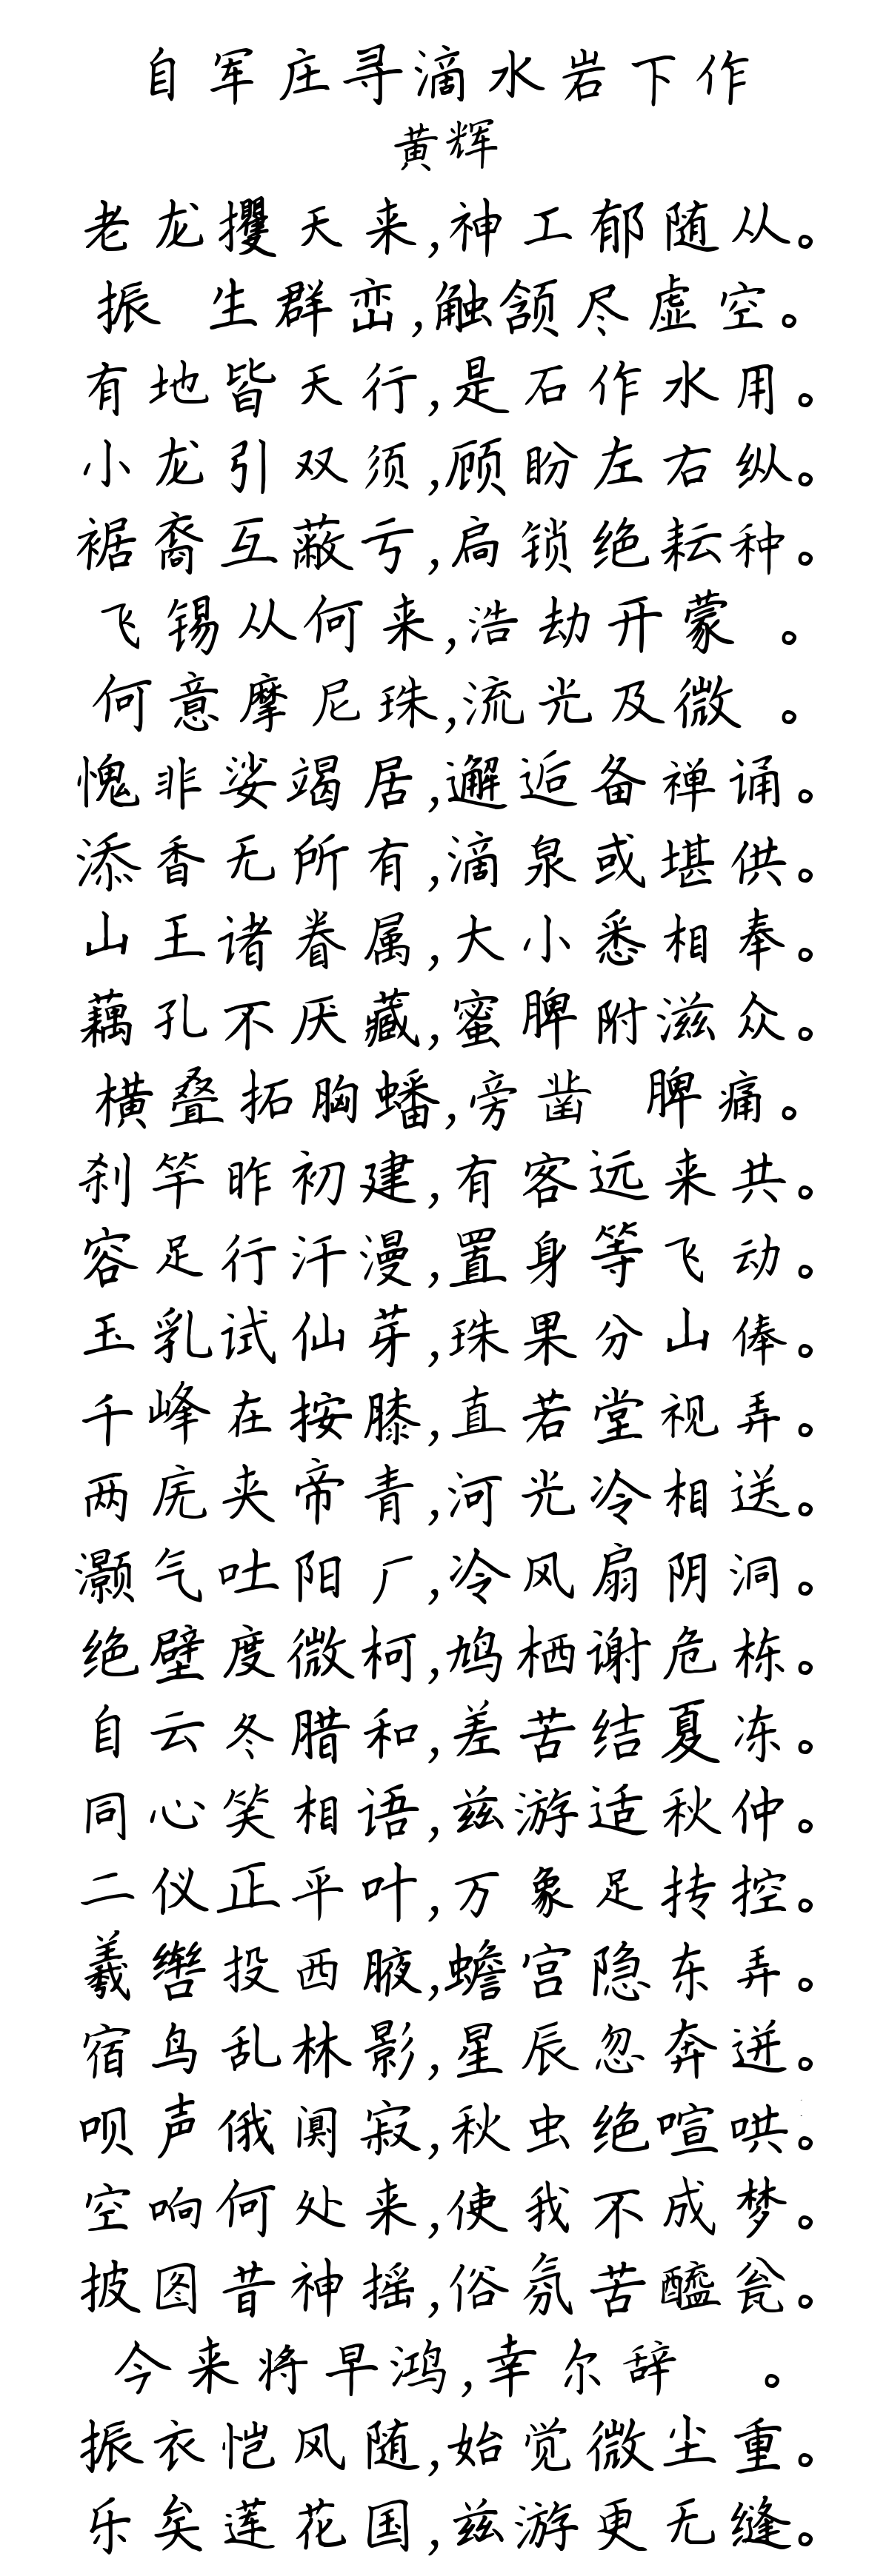 自军庄寻滴水岩下作
黄辉
老龙攫天来,神工郁随从。
振 生群峦,触颔尽虚空。
有地皆天行,是石作水用。
小龙引双须,顾盼左右纵。
裾裔互蔽亏,扃锁绝耘种。
飞锡从何来,浩劫开蒙 。
何意摩尼珠,流光及微 。
愧非娑竭居,邂逅备禅诵。
添香无所有,滴泉或堪供。
山王诸眷属,大小悉相奉。
藕孔不厌藏,蜜脾附滋众。
横叠拓胸蟠,旁凿 脾痛。
刹竿昨初建,有客远来共。
容足行汗漫,置身等飞动。
玉乳试仙芽,珠果分山俸。
千峰在按膝,直若堂视弄。
两庑夹帝青,河光冷相送。
灏气吐阳厂,冷风扇阴洞。
绝壁度微柯,鸠栖谢危栋。
自云冬腊和,差苦结夏冻。
同心笑相语,兹游适秋仲。
二仪正平叶,万象足抟控。
羲辔投西腋,蟾宫隐东弄。
宿鸟乱林影,星辰忽奔迸。
呗声俄阒寂,秋虫绝喧哄。
空响何处来,使我不成梦。
披图昔神摇,俗氛苦醯瓮。
今来将早鸿,幸尔辞 。
振衣恺风随,始觉微尘重。
乐矣莲花国,兹游更无缝。